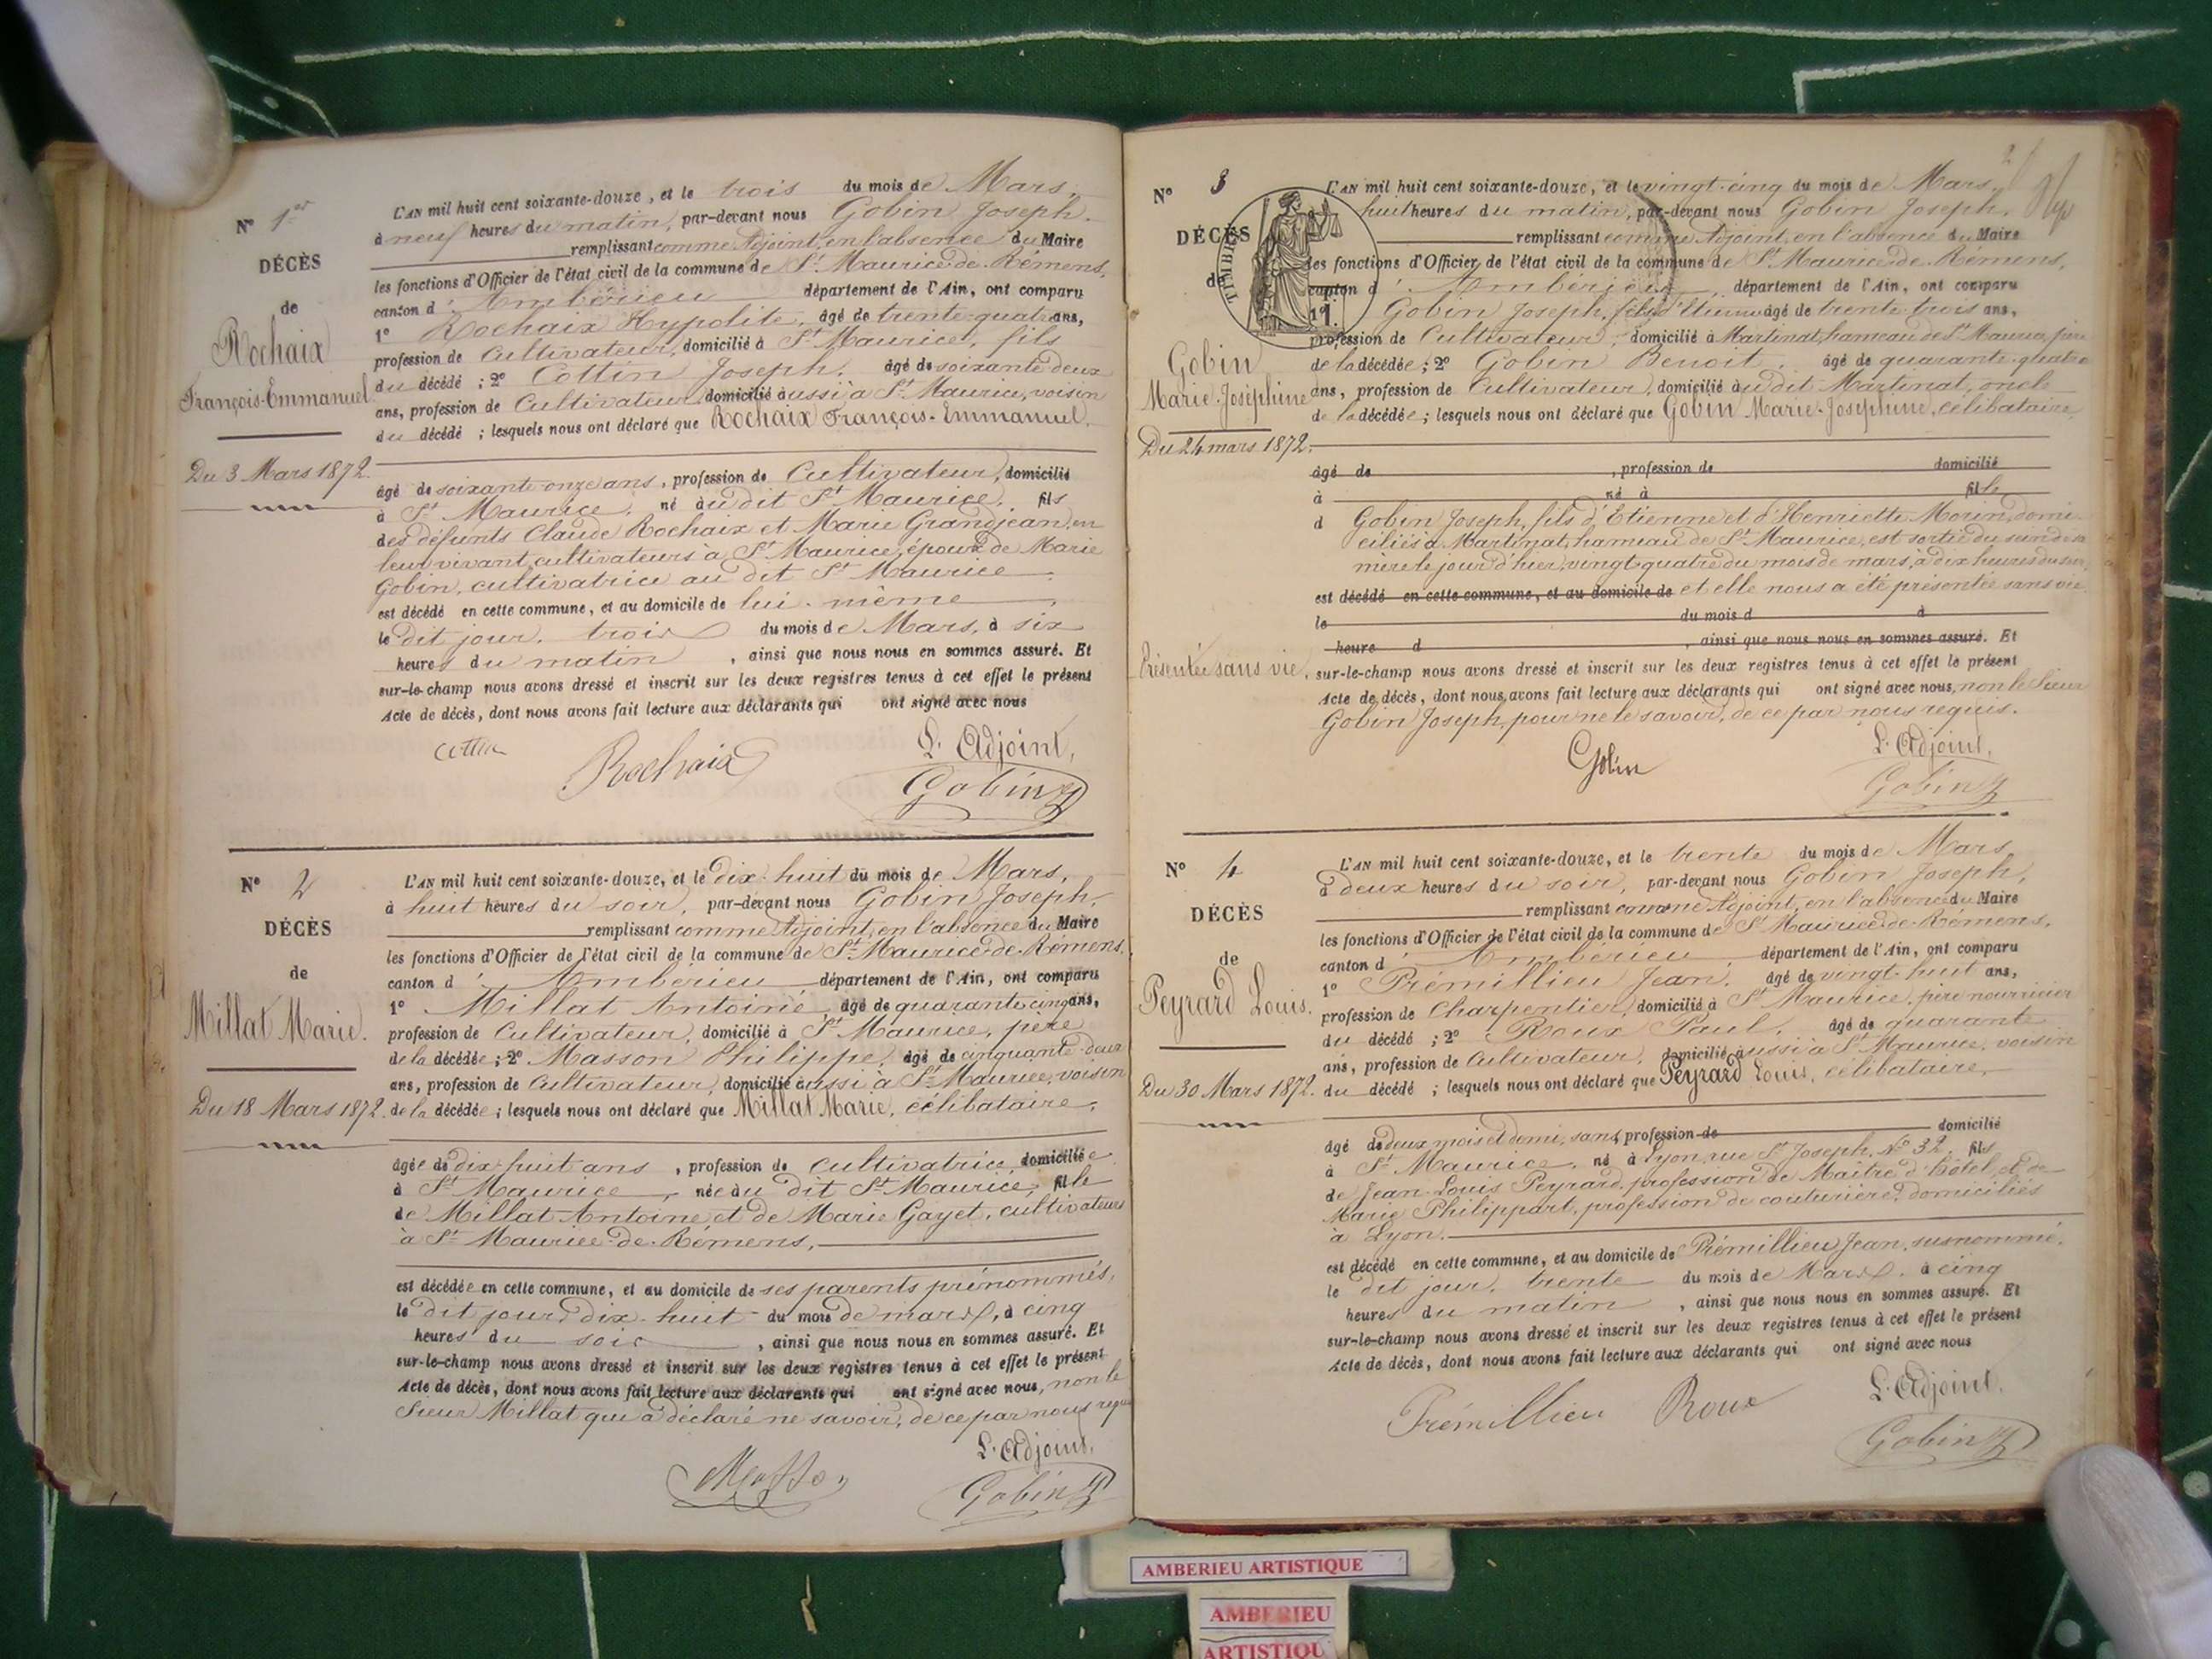 N° 1er
DÉCÈS
de
Rochaix
François-Emmanuel
Du 3 Mars 1872.
L'AN mil huit cent soixante-douze, et le trois du mois de Mars,
à neuf heures du matin, par-devant nous Gobin Joseph,
remplissant comme Adjoint, en l'absence du Maire
les fonctions d'Officier de l'état civil de la commune de St Maurice-de-Rémens,
canton d'Ambérieu département de l'Ain, ont comparu
1° Rochaix Hypolite, âgé de trente-quatre ans,
profession de Cultivateur, domicilié à St Maurice, fils
du décédé ; 2° Cottin Joseph, âgé de soixante deux
ans, profession de Cultivateur, domicilié aussi à St Maurice, voisin
du décédé ; lesquels nous ont déclaré que Rochaix François-Emmanuel,
âgé de soixante-onze ans, profession de Cultivateur, domicilié
à St Maurice, né au dit St Maurice, fils
des défunts Claude Rochaix et Marie Grandjean, en
leur vivant cultivateurs à St Maurice, époux de Marie
Gobin, cultivatrice au dit St Maurice
est décédé en cette commune, et au domicile de lui-même
le dit jour, trois du mois de Mars, à six
heures du matin, ainsi que nous nous en sommes assuré. Et
sur-le-champ nous avons dressé et inscrit sur les deux registres tenus à cet effet le présent
Acte de décès, dont nous avons fait lecture aux déclarants qui ont signé avec nous
L'Adjoint,
cottin Rochaix Gobin
N° 2
DÉCÈS
de
Millat Marie.
Du 18 Mars 1872.
L'AN mil huit cent soixante-douze, et le dix-huit du mois de Mars,
à huit heures du soir, par-devant nous Gobin Joseph,
remplissant comme Adjoint, en l'absence du Maire
les fonctions d'Officier de l'état civil de la commune de St Maurice-de-Rémens,
canton d'Ambérieu département de l'Ain, ont comparu
1° Millat Antoine, âgé de quarante-cinq ans,
profession de Cultivateur, domicilié à St Maurice, père
de la décédée ; 2° Masson Philippe, âgé de cinquante-deux
ans, profession de Cultivateur, domicilié aussi à St Maurice, voisin
de la décédée ; lesquels nous ont déclaré que Millat Marie, célibataire,
âgée de dix-huit ans, profession de cultivatrice, domiciliée
à St Maurice, née au dit St Maurice, fille
de Millat Antoine et de Marie Gayet, cultivateurs
à St Maurice-de-Rémens,
est décédée en cette commune, et au domicile de ses parents prénommés,
le dit jour, dix-huit du mois de mars, à cinq
heures du soir, ainsi que nous nous en sommes assuré. Et
sur-le-champ nous avons dressé et inscrit sur les deux registres tenus à cet effet le présent
Acte de décès, dont nous avons fait lecture aux déclarants qui ont signé avec nous, non le
Sieur Millat qui a déclaré ne savoir, de ce par nous requis
L'Adjoint,
Masson Gobin
N° 3
DÉCÈS
de
TIMBRE
Gobin
Marie-Joséphine
Du 24 mars 1872.
Présentée sans vie.
L'AN mil huit cent soixante-douze, et le vingt-cinq du mois de Mars,
huit heures du matin, par-devant nous Gobin Joseph,
remplissant comme Adjoint, en l'absence du Maire
les fonctions d'Officier de l'état civil de la commune de St Maurice-de-Rémens,
canton d'Ambérieu, département de l'Ain, ont comparu
1° Gobin Joseph, fils d'Etienne âgé de trente-trois ans,
profession de Cultivateur, domicilié à Martinat, hameau de St Maurice, père
de la décédée ; 2° Gobin Benoit, âgé de quarante-quatre
ans, profession de Cultivateur, domicilié au dit Martinat, oncle
de la décédée ; lesquels nous ont déclaré que Gobin Marie-Joséphine, célibataire,
âgé de , profession de domicilié
à né à fille
d Gobin Joseph, fils d'Etienne et d'Henriette Morin, domi-
ciliés à Martinat, hameau de St Maurice, est sortie du sein de sa
mère le jour d'hier, vingt-quatre du mois de mars, à dix heures du soir,
est décédé en cette commune, et au domicile de et elle nous a été présentée sans vie
le du mois d à
heure d , ainsi que nous nous en sommes assuré. Et
sur-le-champ nous avons dressé et inscrit sur les deux registres tenus à cet effet le présent
Acte de décès, dont nous avons fait lecture aux déclarants qui ont signé avec nous, non le Sieur
Gobin Joseph, pour ne le savoir, de ce par nous requis.
L'Adjoint,
Gobin Gobin
N° 4
DÉCÈS
de
Peyrard Louis.
Du 30 Mars 1872.
L'AN mil huit cent soixante-douze, et le trente du mois de Mars,
à deux heures du soir, par-devant nous Gobin Joseph,
remplissant comme Adjoint, en l'absence du Maire
les fonctions d'Officier de l'état civil de la commune de St Maurice-de-Rémens,
canton d'Ambérieu, département de l'Ain, ont comparu
1° Prémillieu Jean, âgé de vingt-huit ans,
profession de Charpentier, domicilié à St Maurice, père nourricier
du décédé ; 2° Roux Paul, âgé de quarante
ans, profession de Cultivateur, domicilié aussi à St Maurice, voisin
du décédé ; lesquels nous ont déclaré que Peyrard Louis, célibataire,
âgé de deux mois et demi, sans profession de domicilié
à St Maurice, né à Lyon, rue St Joseph, N° 32, fils
de Jean-Louis Peyrard, profession de Maître d'hôtel, et de
Marie Philippart, profession de couturière, domiciliés
à Lyon.
est décédé en cette commune, et au domicile de Prémillieu Jean, susnommé,
le dit jour, trente du mois de Mars, à cinq
heures du matin, ainsi que nous nous en sommes assuré. Et
sur-le-champ nous avons dressé et inscrit sur les deux registres tenus à cet effet le présent
Acte de décès, dont nous avons fait lecture aux déclarants qui ont signé avec nous
L'Adjoint,
Prémillieu Roux Gobin
AMBERIEU ARTISTIQUE
AMBERIEU
ARTISTIQU